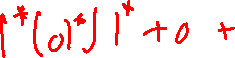 1*(0)*01* + 0 +